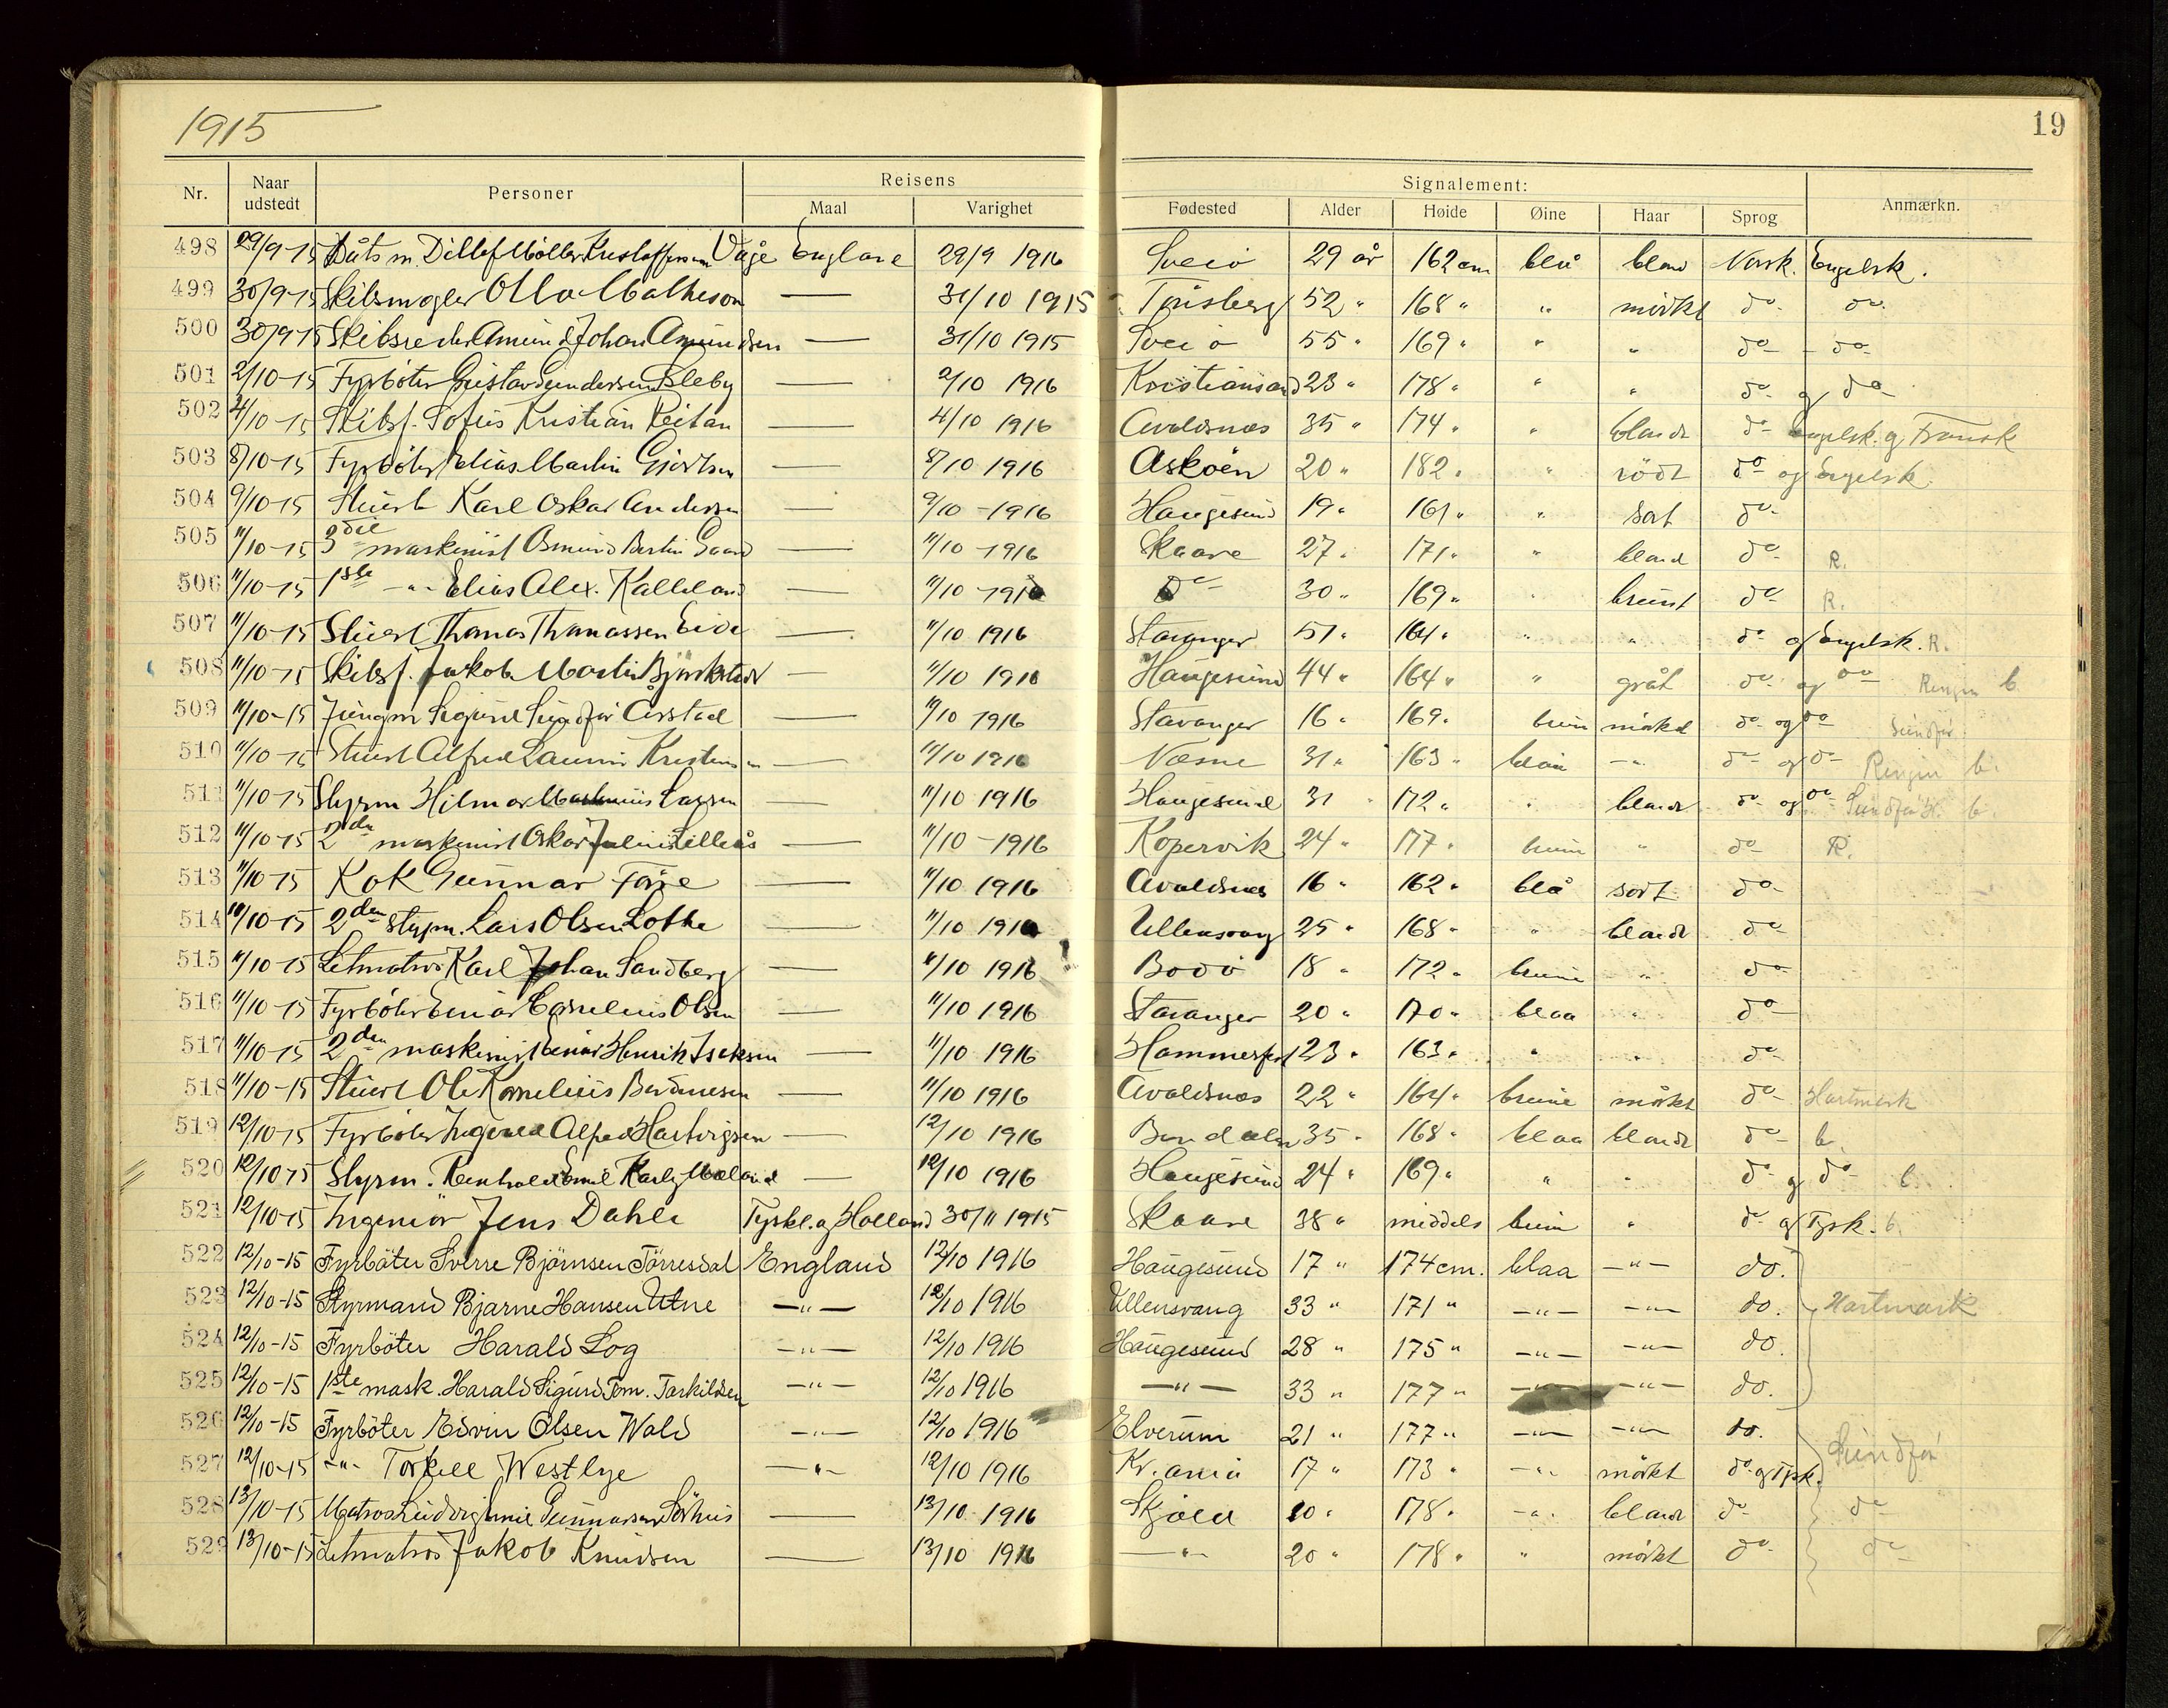 1915
19
Nr. Naar udstedt Personer Reisens Maal Varighet Signalement: Fødested Alder Høide Øine Haar Sprog Anmærkn.
498 29/9-15 Båtsm. Ditlef Möller Kristoffersen Våge England 29/9 1916 Sveio 29 år 162 cm blå blond Norsk. Engelsk.
499 30/9-15 Skibsmægler Otto Matheson — 31/10 1915 Tönsberg 52 " 168 " " mörkt do- do-
500 30/9-15 Skibsreder Amund Johan Amundsen — 31/10 1915 Sveio 55 " 169 " " " do- - do-
501 2/10-15 Fyrböter Gustav Gundersen Sleby — 2/10 1916 Kristiansand 23 " 178 " " " do- og do-
502 4/10-15 Skibsf. Sofus Kristian Reitan — 4/10 1916 Avaldsnes 35 " 174 " " blondt do- engelsk. og Fransk
503 8/10-15 Fyrböter Elias Martin Gjertsen — 8/10 1916 Asköen 20 " 182 " " rödt do og Engelsk.
504 9/10-15 Stuert Karl Oskar Andersen — 9/10-1916 Haugesund 19 " 161 " " sort do-
505 11/10-15 3die maskinist Osmund Bertin Gaard — 11/10-1916 Skaare 27 " 171 " " blond do- R.
506 11/10-15 1ste -"- Elias Alex. Kalleland — 11/10-1916 do- 30 " 169 " " brunt do- R.
507 11/10-15 Stuert Thomas Thomassen Eide — 11/10 1916 Stavanger 51 " 164 " " " do- og Engelsk. R.
508 11/10-15 Skibsf. Jakob Martin — 11/10 1916 Haugesund 44 " 164 " " gråt do- og do- b.
509 11/10-15 Jungm Sigurd Sundför Årstad — 11/10 1916 Stavanger 16 " 169 " brun mörkt do- og do- Sundför
510 11/10-15 Stuert Alfred Kristensen — 11/10 1916 31 " 163 " blåa -"- do- og do- b.
511 11/10-15 Styrm Hilmar Larsen — 11/10 1916 Haugesund 31 " 172 " " blondt do- og do- Sundför b.
512 11/10-15 2den maskinist Oskar Julius Lilleås — 11/10-1916 Kopervik 24 " 177 " brun " do- R.
513 11/10-15 Kok Gunnar — 11/10 1916 Avaldsnes 16 " 162 " blå sort do-
514 11/10-15 2den Styrm. Lars Olsen Lothe — 11/10 1916 Ullensvang 25 " 168 " " blondt do-
515 11/10-15 Letmatros Karl Johan Sandberg — 11/10 1916 Bodö 18 " 172 " brune " do-
516 11/10-15 Fyrböter Einar Cornelius Olsen — 11/10 1916 Stavanger 20 " 170 " blaa " do-
517 11/10-15 2den maskinist Einar Henrik Isaksen — 11/10 1916 Hammerfest 23 " 163 " " " do-
518 11/10-15 Stuert Ole Kornelius — 11/10 1916 Avaldsnes 22 " 164 " brune mörkt do- Hartmark
519 12/10-15 Fyrböter Ingvald Alfred Hartvigsen — 12/10 1916 Bindalen 35 " 168 " blaa blondt do- b.
520 12/10 15 Styrm. Reinhold Emil — 12/10 1916 Haugesund 24 " 169 " " " do- og do- b.
521 12/10-15 Ingeniör Jens Dahle Tyskl. og Holland 30/11 1915 Skaare 38 " middels brun " do- og Tysk. b.
522 12/10-15 Fyrböter Sverre Björnsen Törresdal England 12/10 1916 Haugesund 17 " 174 cm. blaa -"- do.
523 12/10-15 Styrmand Bjarne Hansen Utne -"- 12/10 1916 Ullensvang 33 " 171 " -"- -"- do. Hartmark
524 12/10-15 Fyrböter Harald Log -"- 12/10 1916 Haugesund 28 " 175 " -"- -"- do.
525 12/10-15 1ste mask. Harald Sigurd Tom. Torkildsen -"- 12/10 1916 -"- 33 " 177 " -"- -"- do.
526 12/10-15 Fyrböter Edvin Olsen Wold -"- 12/10 1916 Elverum 21 " 177 " -"- -"- do. Sundför
527 12/10-15 -"- Torkell Westlye -"- 12/10 1916 Kr.ania 17 " 173 " -"- mörkt do- og Tysk.
528 13/10-15 Matros Ludvig Emil Gunnarsen Sörhus — 13/10 1916 Skjold 20 " 178 " -"- blondt do- do-
529 13/10-15 Letmatros Jakob Knudsen — 13/10 1916 -"- 20 " 178 " " mörkt do- do-